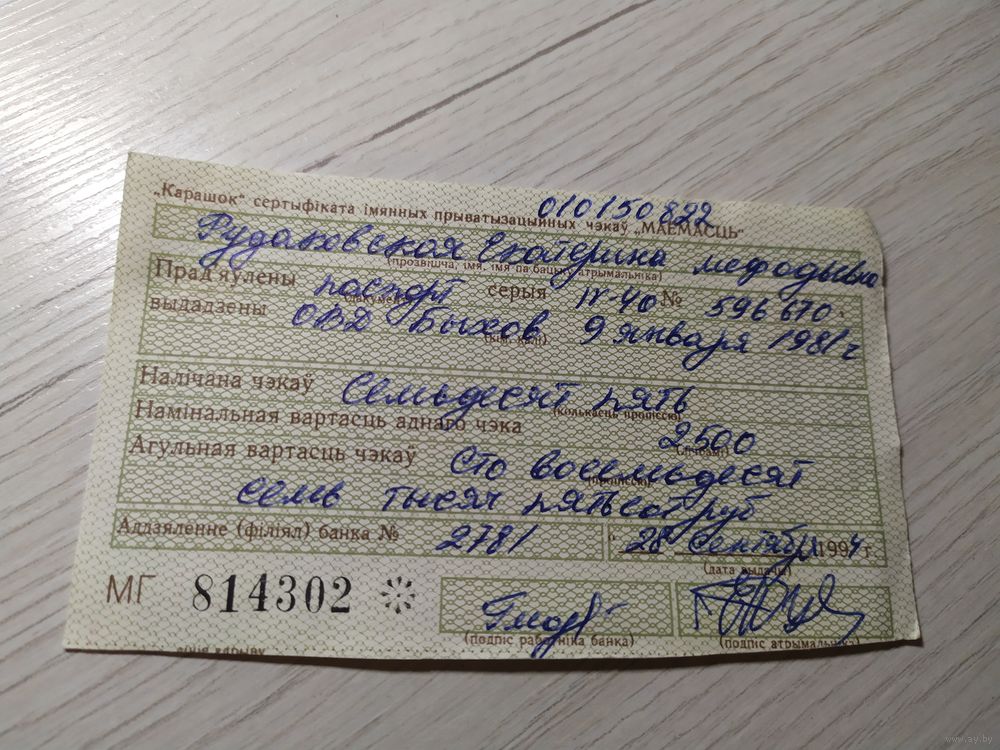 010150822
„Карашок“ сертыфіката імянных прыватызацыйных чэкаў „МАЕМАСЦЬ“
Рудаковская Екатерина Мефодьевна
(прозвішча, імя, імя па бацьку атрымальніка)
Прад'яўлены паспорт серыя IV-40 № 596670
выдадзены ОВД Быхов 9 января 1981 г
Налічана чэкаў Семьдесят пять
(колькасць пропіссю)
Намінальная вартасць аднаго чэка 2500
(лічбамі)
Агульная вартасць чэкаў Сто восемьдесят
(пропіссю)
семь тысяч пятьсот руб
Аддзяленне (філіял) банка № 2781 28 Сентября 1994 г.
(дата выдачы)
МГ 814302
(подпіс работніка банка) (подпіс атрымальніка)
www.ay.by